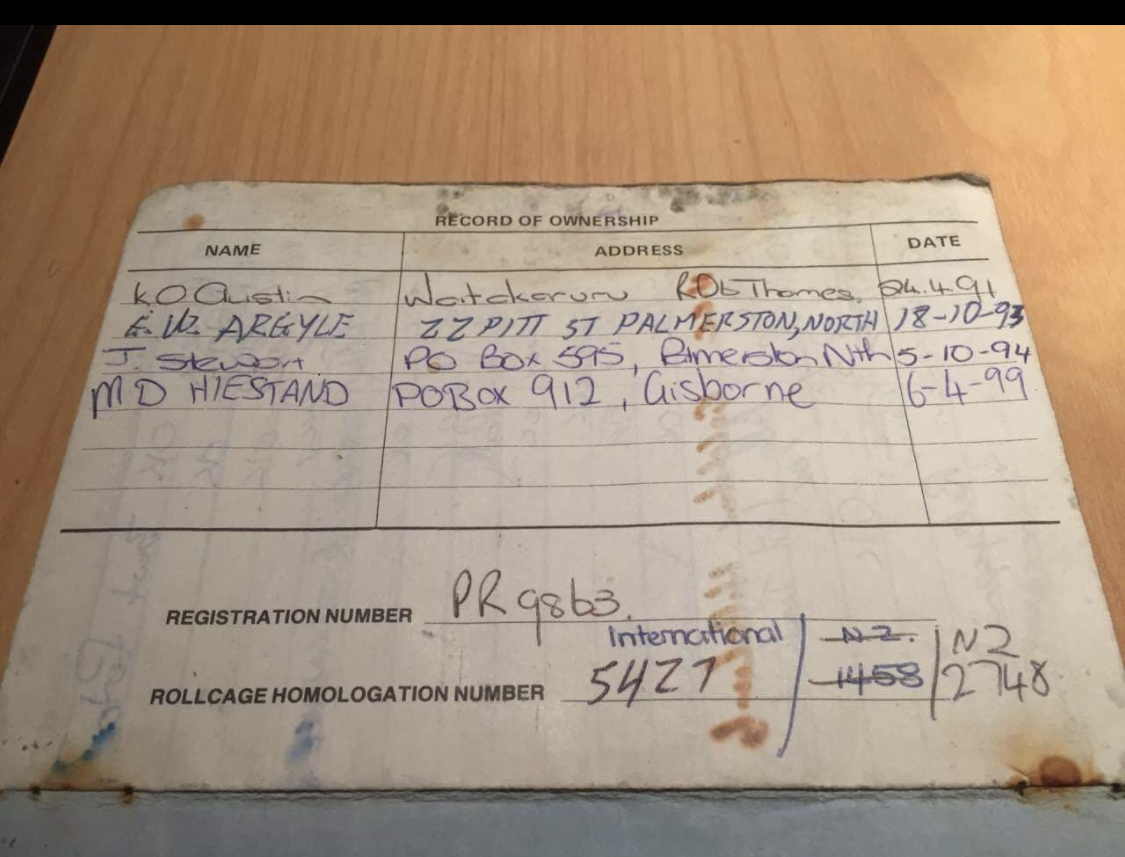 RECORD OF OWNERSHIP
NAME ADDRESS DATE
K O Austin Waitakaruru RD6 Thames. 24.4.91
E. W. ARGYLE 22 PITT ST PALMERSTON, NORTH 18-10-93
J. Stewart PO Box 595, Palmerston Nth 5-10-94
M D HIESTAND PO Box 912, Gisborne 6-4-99
REGISTRATION NUMBER PR9863.
International N.Z. NZ
ROLLCAGE HOMOLOGATION NUMBER 5427 1458 2748